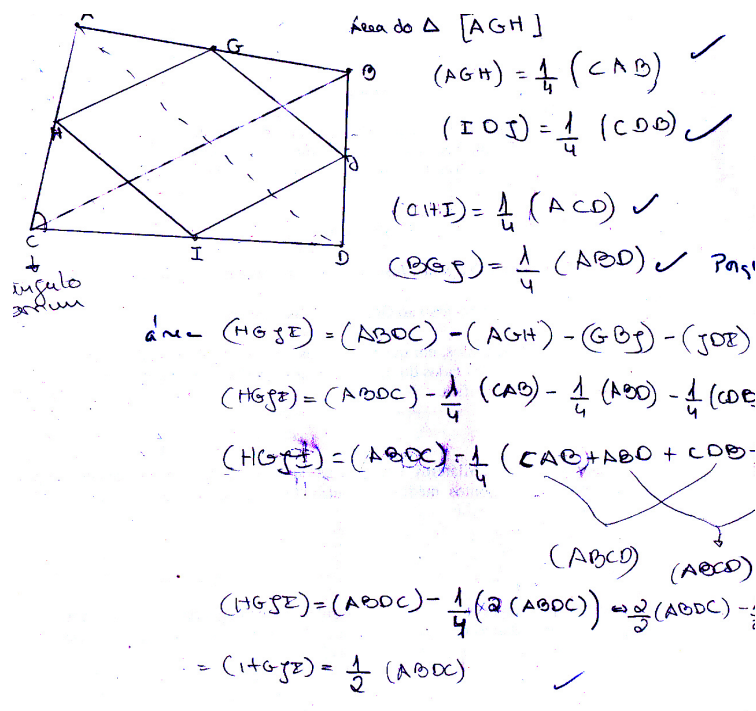 A
G
B
H
J
C
I
D
ângulo
comum
Área do Δ [AGH]
(AGH) = 1/4 (CAB) ✓
(IDJ) = 1/4 (CDB) ✓
(CHI) = 1/4 (ACD) ✓
(BGJ) = 1/4 (ABD) ✓ Porq
área (HGJI) = (ABDC) - (AGH) - (GBJ) - (JDI)
(HGJI) = (ABDC) - 1/4 (CAB) - 1/4 (ABD) - 1/4 (CDB
(HGJI) = (ABDC) - 1/4 (CAB + ABD + CDB +
(ABCD) (ABCD)
(HGJI) = (ABDC) - 1/4 (2 (ABDC)) ⇔ 2/2 (ABDC) -
= (HGJI) = 1/2 (ABDC) ✓